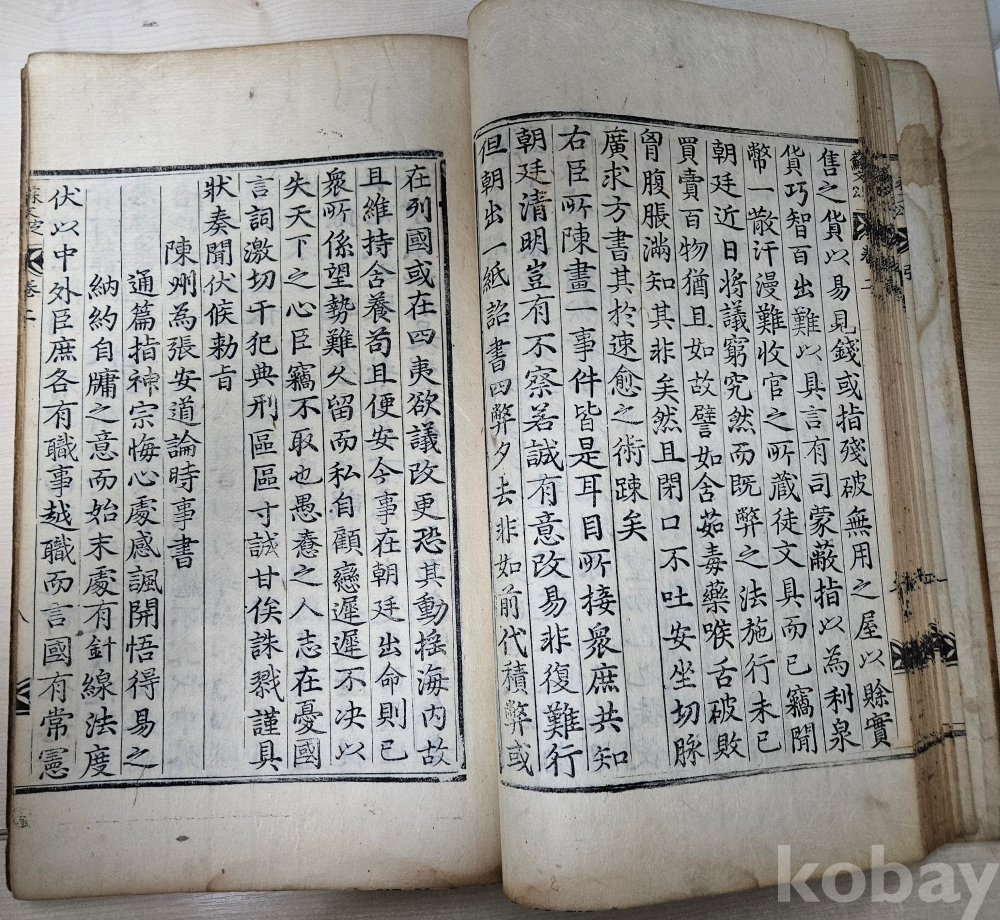 售之貨以易見錢或指殘破無用之屋以賒實
貨巧智百出難以具言有司蒙蔽指以為利泉
幣一散汗漫難收官之所蔵徒文具而已竊聞
朝廷近日將議窮究然而既弊之法施行未已
買賣百物猶且如故譬如舍茹毒藥喉舌破敗
胷腹脹滿知其非矣然且閉口不吐安坐切脉
廣求方書其於速愈之術踈矣
右臣所陳畫一事件皆是耳目所接衆庶共知
朝廷清明豈有不察若誠有意改易非復難行
但朝出一紙詔書四弊夕去非如前代積弊或
在列國或在四夷欲議改更恐其動揺海内故
且維持含養苟且便安今事在朝廷出命則已
衆所係望勢難久留而私自顧戀遲遲不决以
失天下之心臣竊不取也愚憃之人志在憂國
言詞激切干犯典刑區區寸誠甘俟誅戮謹具
狀奏聞伏候勅旨
陳州為張安道論時事書
通篇指神宗悔心處感諷開悟得易之
納約自牖之意而始末處有針線法度
伏以中外臣庶各有職事越職而言國有常憲
蘇文定
卷二
kobay